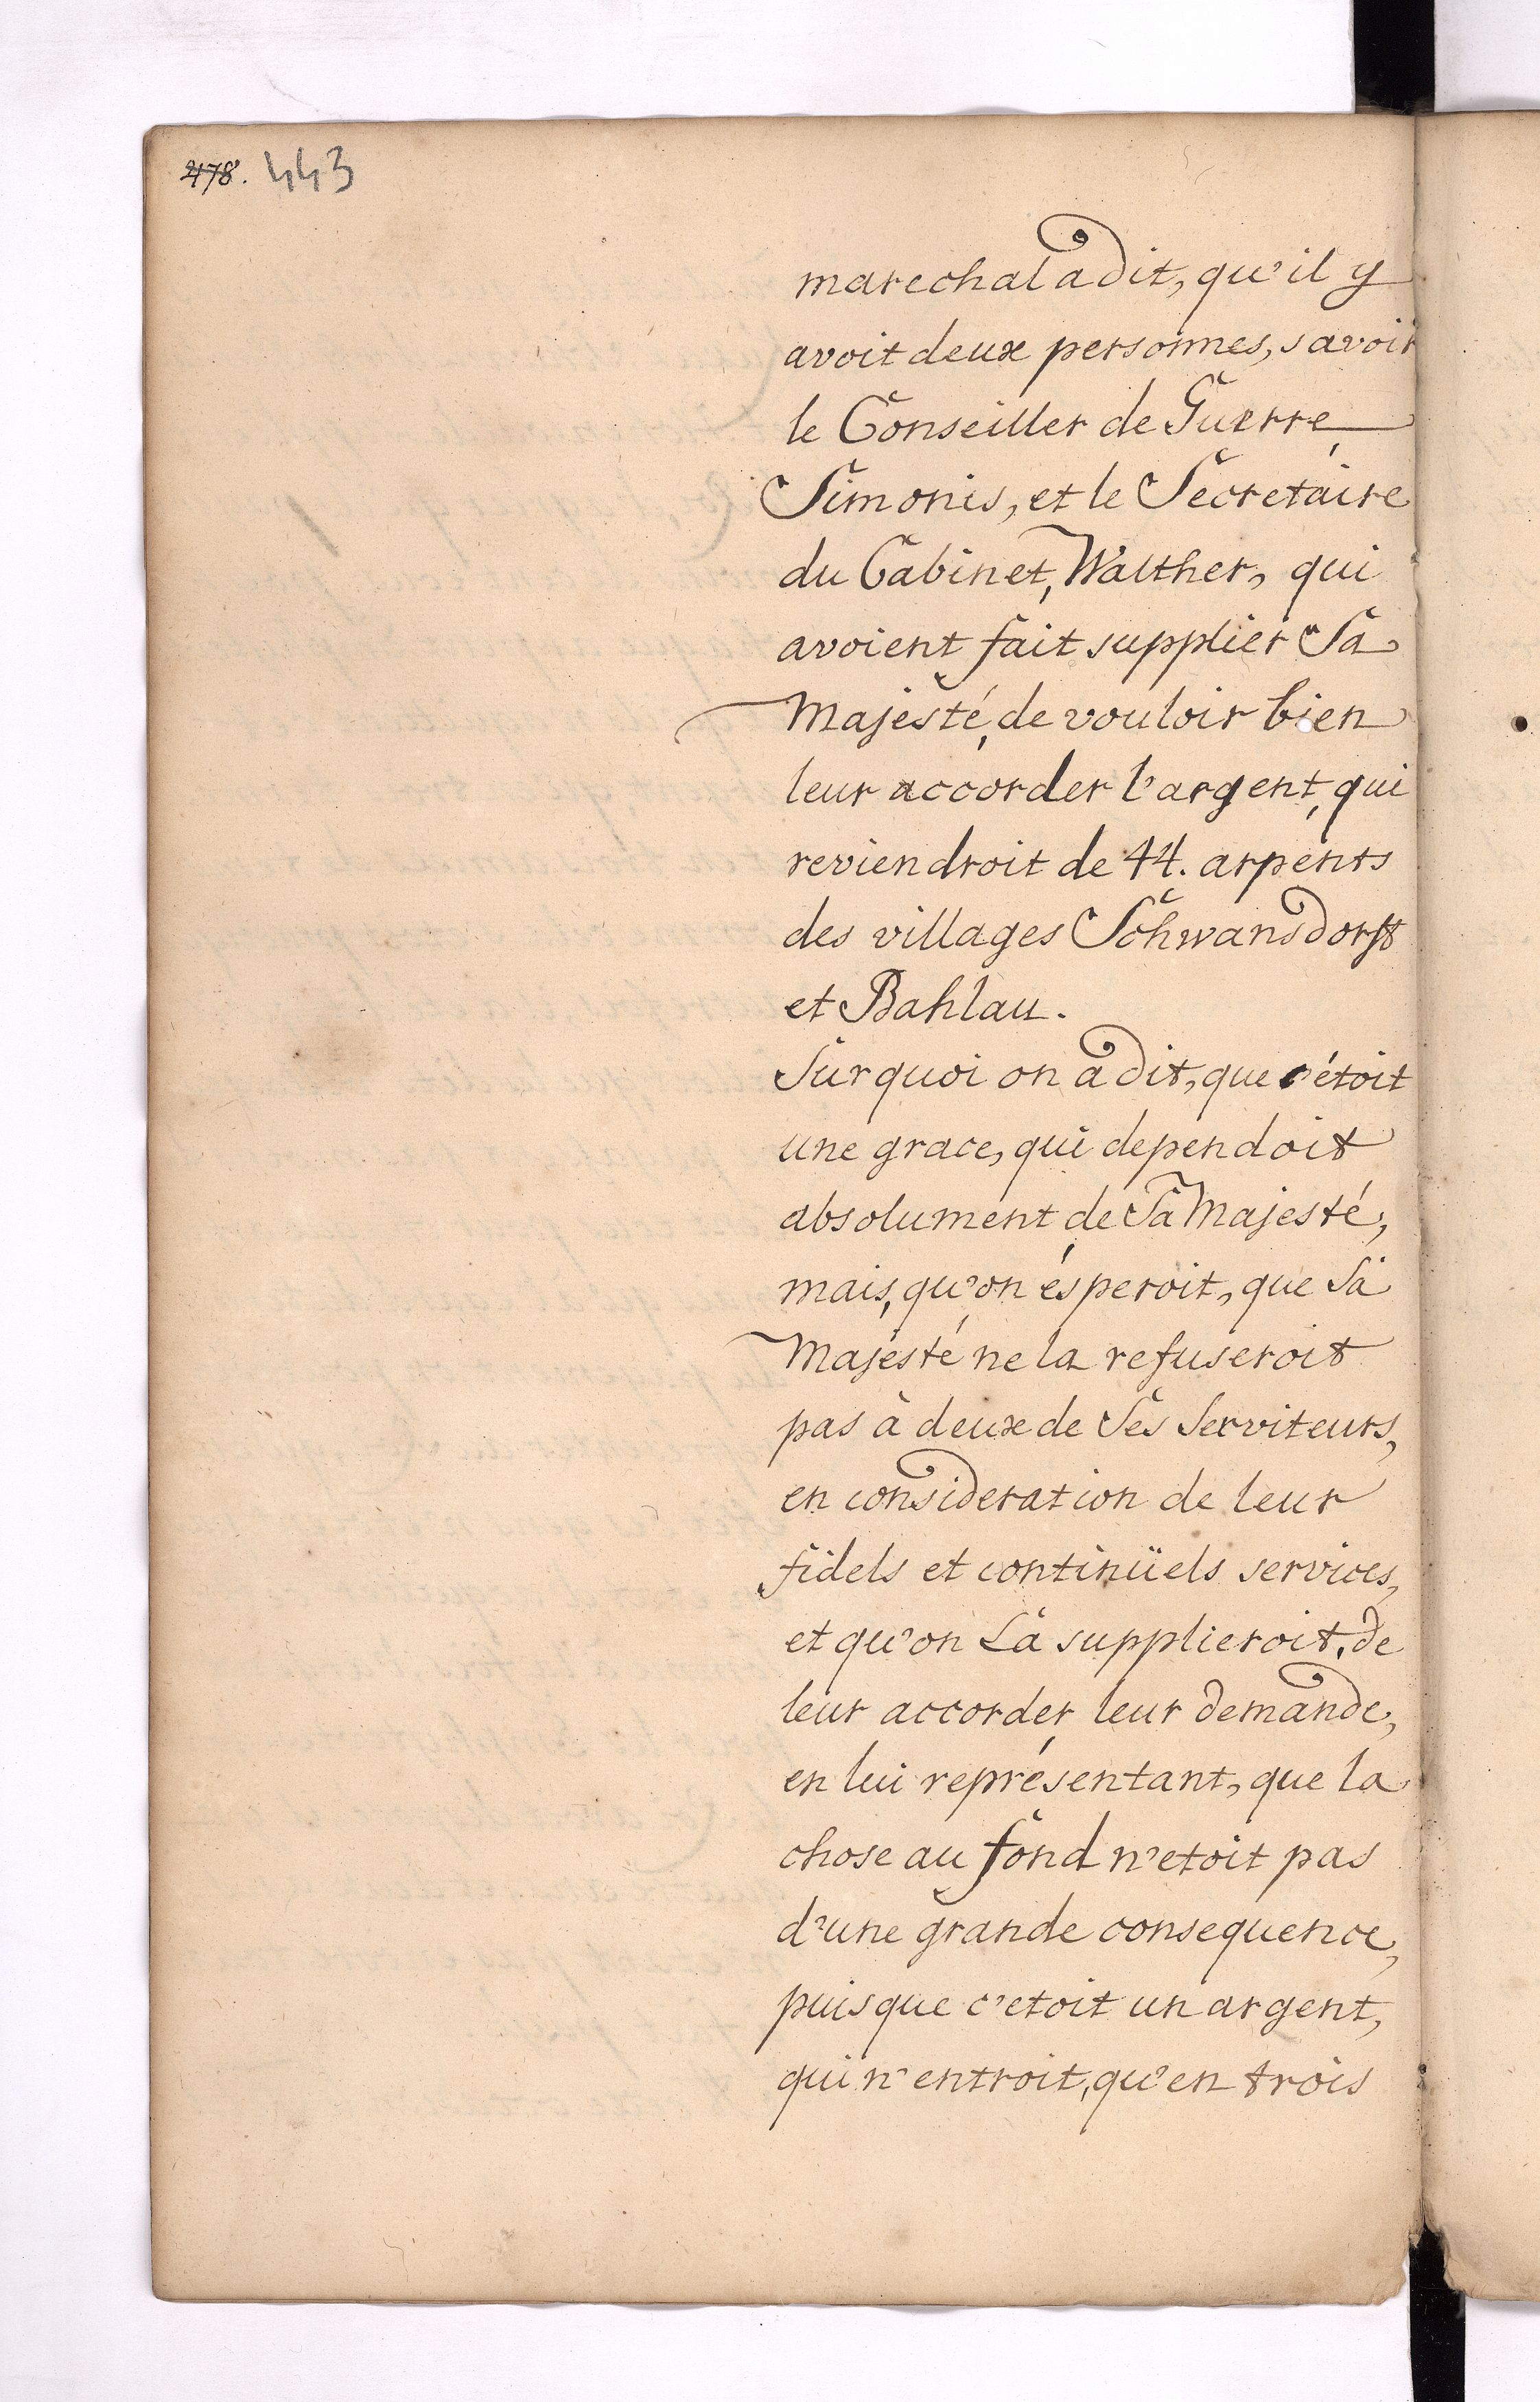 478. 443
marechal a dit, qu'il y
avoit deux personnes, savoir
le Conseiller de Guerre
Simonis, et le Secretaire
du Cabinet, Walther, qui
avoient fait supplier Sa
Majesté, de vouloir bien
leur accorder l'argent, qui
reviendroit de 44. arpents
des villages Schwansdorff
et Bahlau.
Sur quoi on a dit, que c'étoit
une grace, qui dependoit
absolument de Sa Majesté,
mais, qu'on ésperoit, que Sa
Majésté ne la refuseroit
pas à deux de Ses Serviteurs,
en consideration de leur
fidels et continüels services,
et qu'on La supplieroit, de
leur accorder leur demande,
en lui représentant, que la
chose au fond n'etoit pas
d'une grande consequence,
puisque c'etoit un argent,
qui n'entroit, qu'en trois